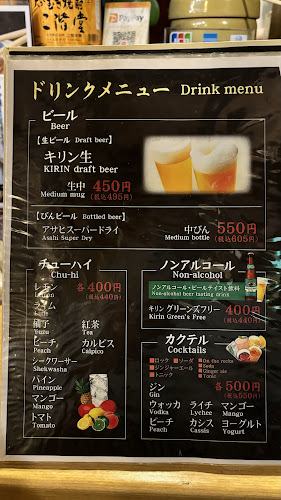 むぎ焼酎
二階堂
PayPay
JCB
ドリンクメニュー Drink menu
ビール
Beer
【生ビール Draft beer】
キリン生
KIRIN draft beer
生中 450円
Medium mug (税込495円)
【びんビール Bottled beer】
アサヒスーパードライ
Asahi Super Dry
中びん 550円
Medium bottle (税込605円)
チューハイ
Chu-hi
レモン 各400円
(税込440円)
柚子 紅茶
Yuzu Tea
ピーチ カルピス
Peach Calpico
シークワーサー
Shekwasha
パイン
Pineapple
マンゴー
Mango
トマト
Tomato
ノンアルコール
Non-alcohol
ノンアルコール・ビールテイスト飲料
Non-alcohol beer tasting drink
キリン グリーンズフリー 400円
Kirin Green's Free (税込440円)
カクテル
Cocktails
■ロック ■ソーダ
■ジンジャーエール
■トニック
■On the rocks
■Soda
■Ginger ale
■Tonic
ジン 各500円
Gin (税込550円)
ウォッカ ライチ マンゴー
Vodka Lychee Mango
ピーチ カシス ヨーグルト
Peach Cassis Yogurt